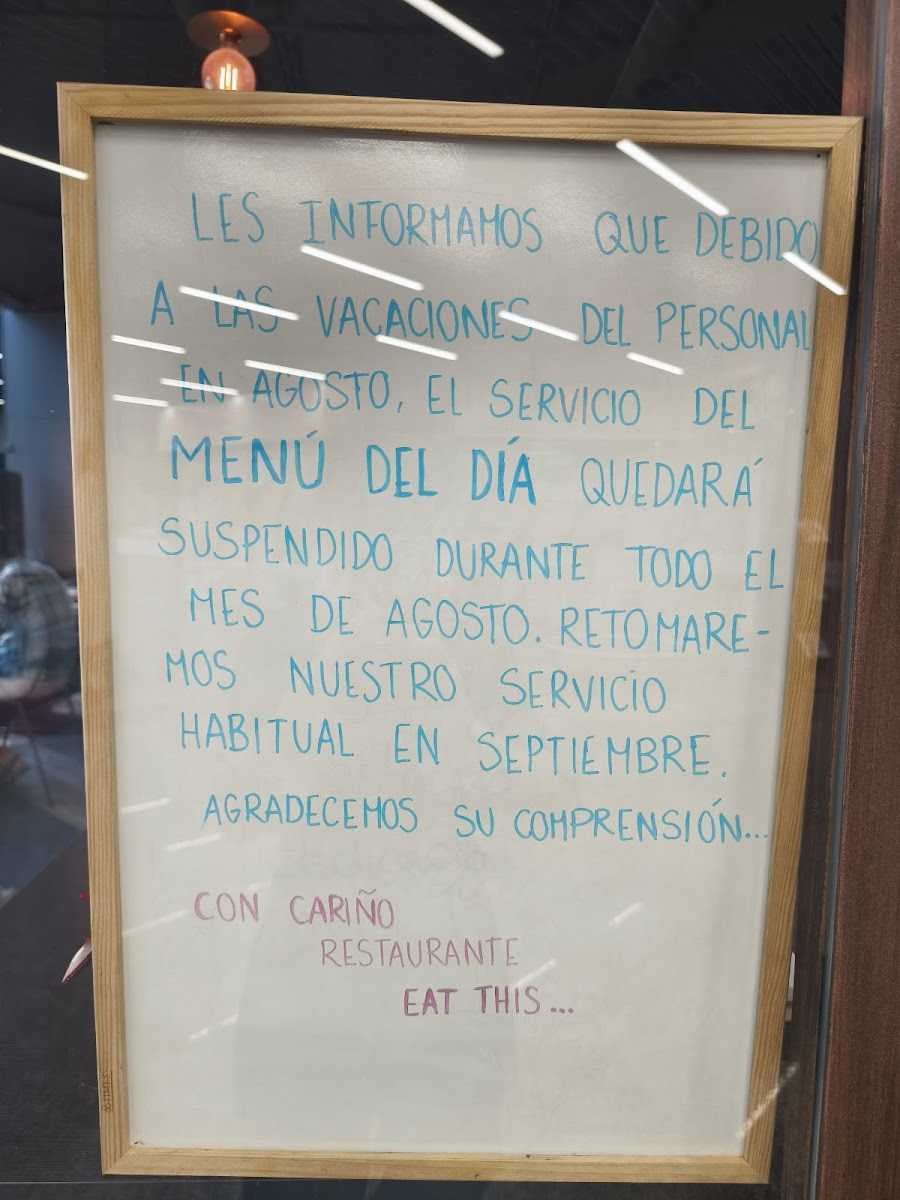 LES INFORMAMOS QUE DEBIDO
A LAS VACACIONES DEL PERSONAL
EN AGOSTO, EL SERVICIO DEL
MENÚ DEL DÍA QUEDARÁ
SUSPENDIDO DURANTE TODO EL
MES DE AGOSTO. RETOMARE-
MOS NUESTRO SERVICIO
HABITUAL EN SEPTIEMBRE.
AGRADECEMOS SU COMPRENSIÓN...
CON CARIÑO
RESTAURANTE
EAT THIS...